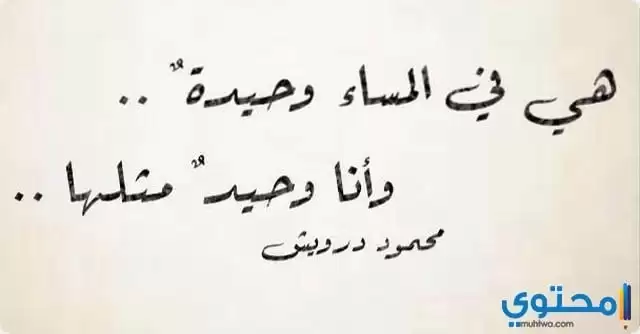 هي في المساء وحيدةٌ ..
وأنا وحيدٌ مثلها ..
محمود درويش
محتوي
www.muhtwa.com